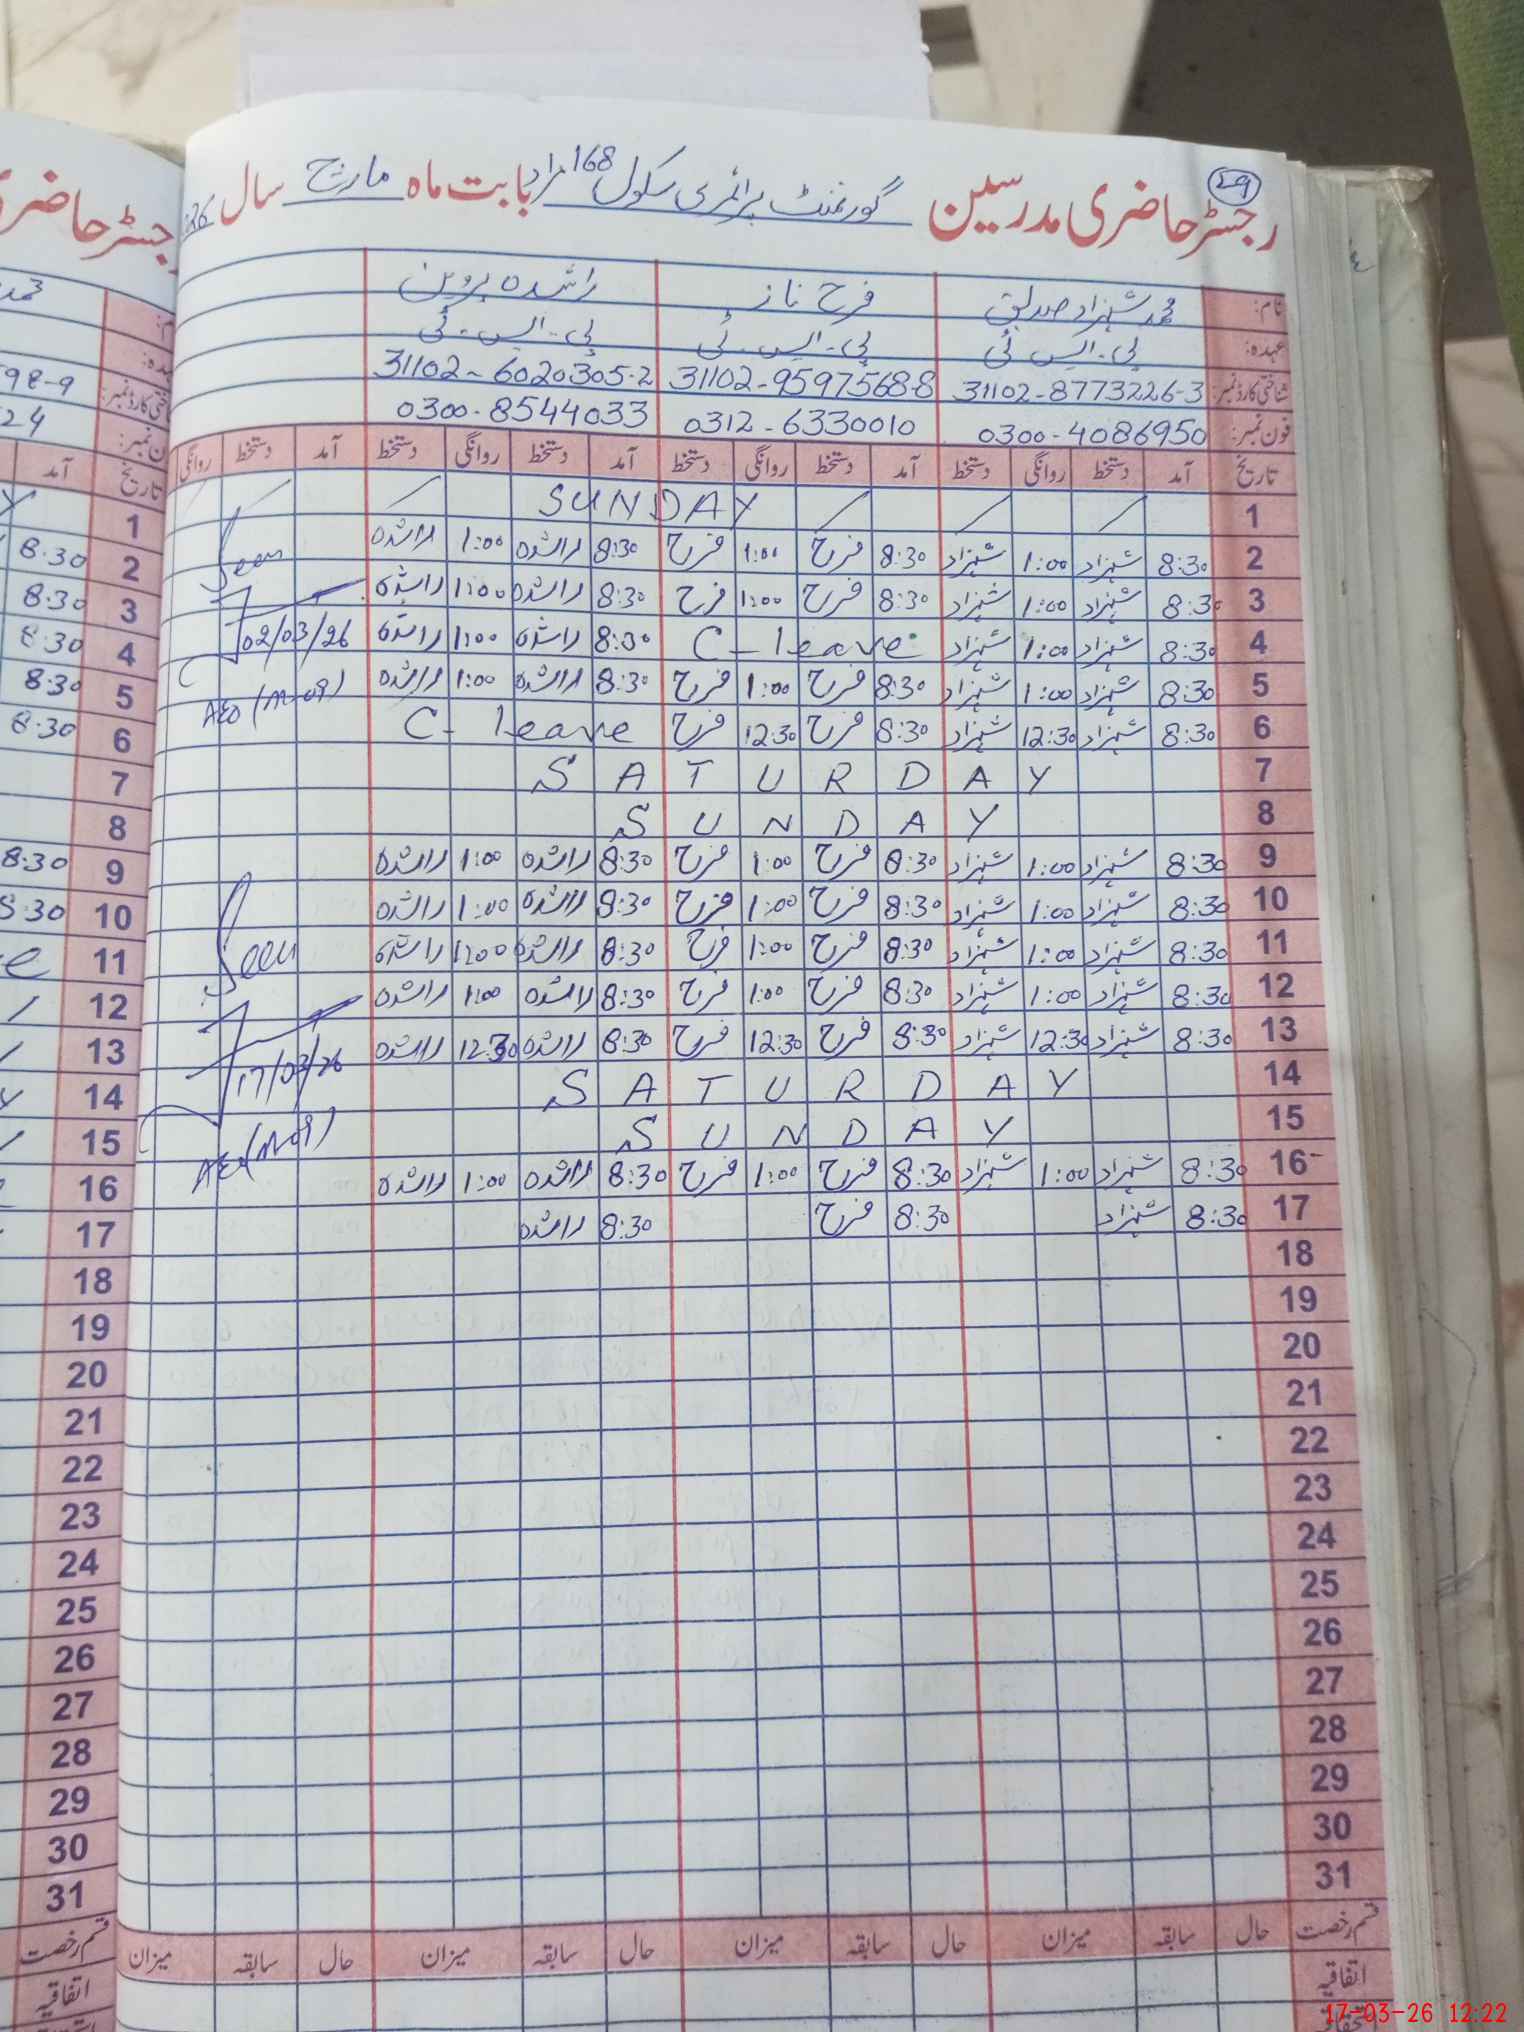 رجسٹر حاضری مدرسین گورنمنٹ پرائمری سکول 168 مراد بابت ماہ مارچ سال
29
نام: محمد شہزاد صدیق فرح ناز راشدہ پروین
عہدہ: پی۔ایس ٹی پی۔ایس۔ٹی پی۔ایس۔ٹی
شناختی کارڈ نمبر: 31102-8773226-3 31102-9597568-8 31102-6020305-2
فون نمبر: 0300-4086950 0312-6330010 0300-8544033
تاریخ آمد دستخط روانگی دستخط آمد دستخط روانگی دستخط آمد دستخط روانگی دستخط آمد دستخط روانگی
1 SUNDAY
2 8:30 شہزاد 1:00 شہزاد 8:30 فرح 1:00 فرح 8:30 راشدہ 1:00 راشدہ Seen
3 8:30 شہزاد 1:00 شہزاد 8:30 فرح 1:00 فرح 8:30 راشدہ 1:00 راشدہ
4 8:30 شہزاد 1:00 شہزاد C-leave 8:30 راشدہ 1:00 راشدہ 02/03/26
5 8:30 شہزاد 1:00 شہزاد 8:30 فرح 1:00 فرح 8:30 راشدہ 1:00 راشدہ AEO (M-09)
6 8:30 شہزاد 12:30 شہزاد 8:30 فرح 12:30 فرح C-leave
7 SATURDAY
8 SUNDAY
9 8:30 شہزاد 1:00 شہزاد 8:30 فرح 1:00 فرح 8:30 راشدہ 1:00 راشدہ
10 8:30 شہزاد 1:00 شہزاد 8:30 فرح 1:00 فرح 8:30 راشدہ 1:00 راشدہ
11 8:30 شہزاد 1:00 شہزاد 8:30 فرح 1:00 فرح 8:30 راشدہ 1:00 راشدہ Seen
12 8:30 شہزاد 1:00 شہزاد 8:30 فرح 1:00 فرح 8:30 راشدہ 1:00 راشدہ
13 8:30 شہزاد 12:30 شہزاد 8:30 فرح 12:30 فرح 8:30 راشدہ 12:30 راشدہ
14 SATURDAY 17/03/26
15 SUNDAY
16 8:30 شہزاد 1:00 شہزاد 8:30 فرح 1:00 فرح 8:30 راشدہ 1:00 راشدہ AEO (M-09)
17 8:30 شہزاد 8:30 فرح 8:30 راشدہ
18
19
20
21
22
23
24
25
26
27
28
29
30
31
قسم رخصت حال سابقہ میزان حال سابقہ میزان حال سابقہ میزان حال سابقہ میزان
اتفاقیہ
رجسٹر حاضری
98-9
24
آمد تاریخ
1
8:30 2
8:30 3
8:30 4
8:30 5
8:30 6
7
8
8:30 9
8:30 10
11
12
13
14
15
16
17
18
19
20
21
22
23
24
25
26
27
28
29
30
31
قسم رخصت
اتفاقیہ
17-03-26 12:22